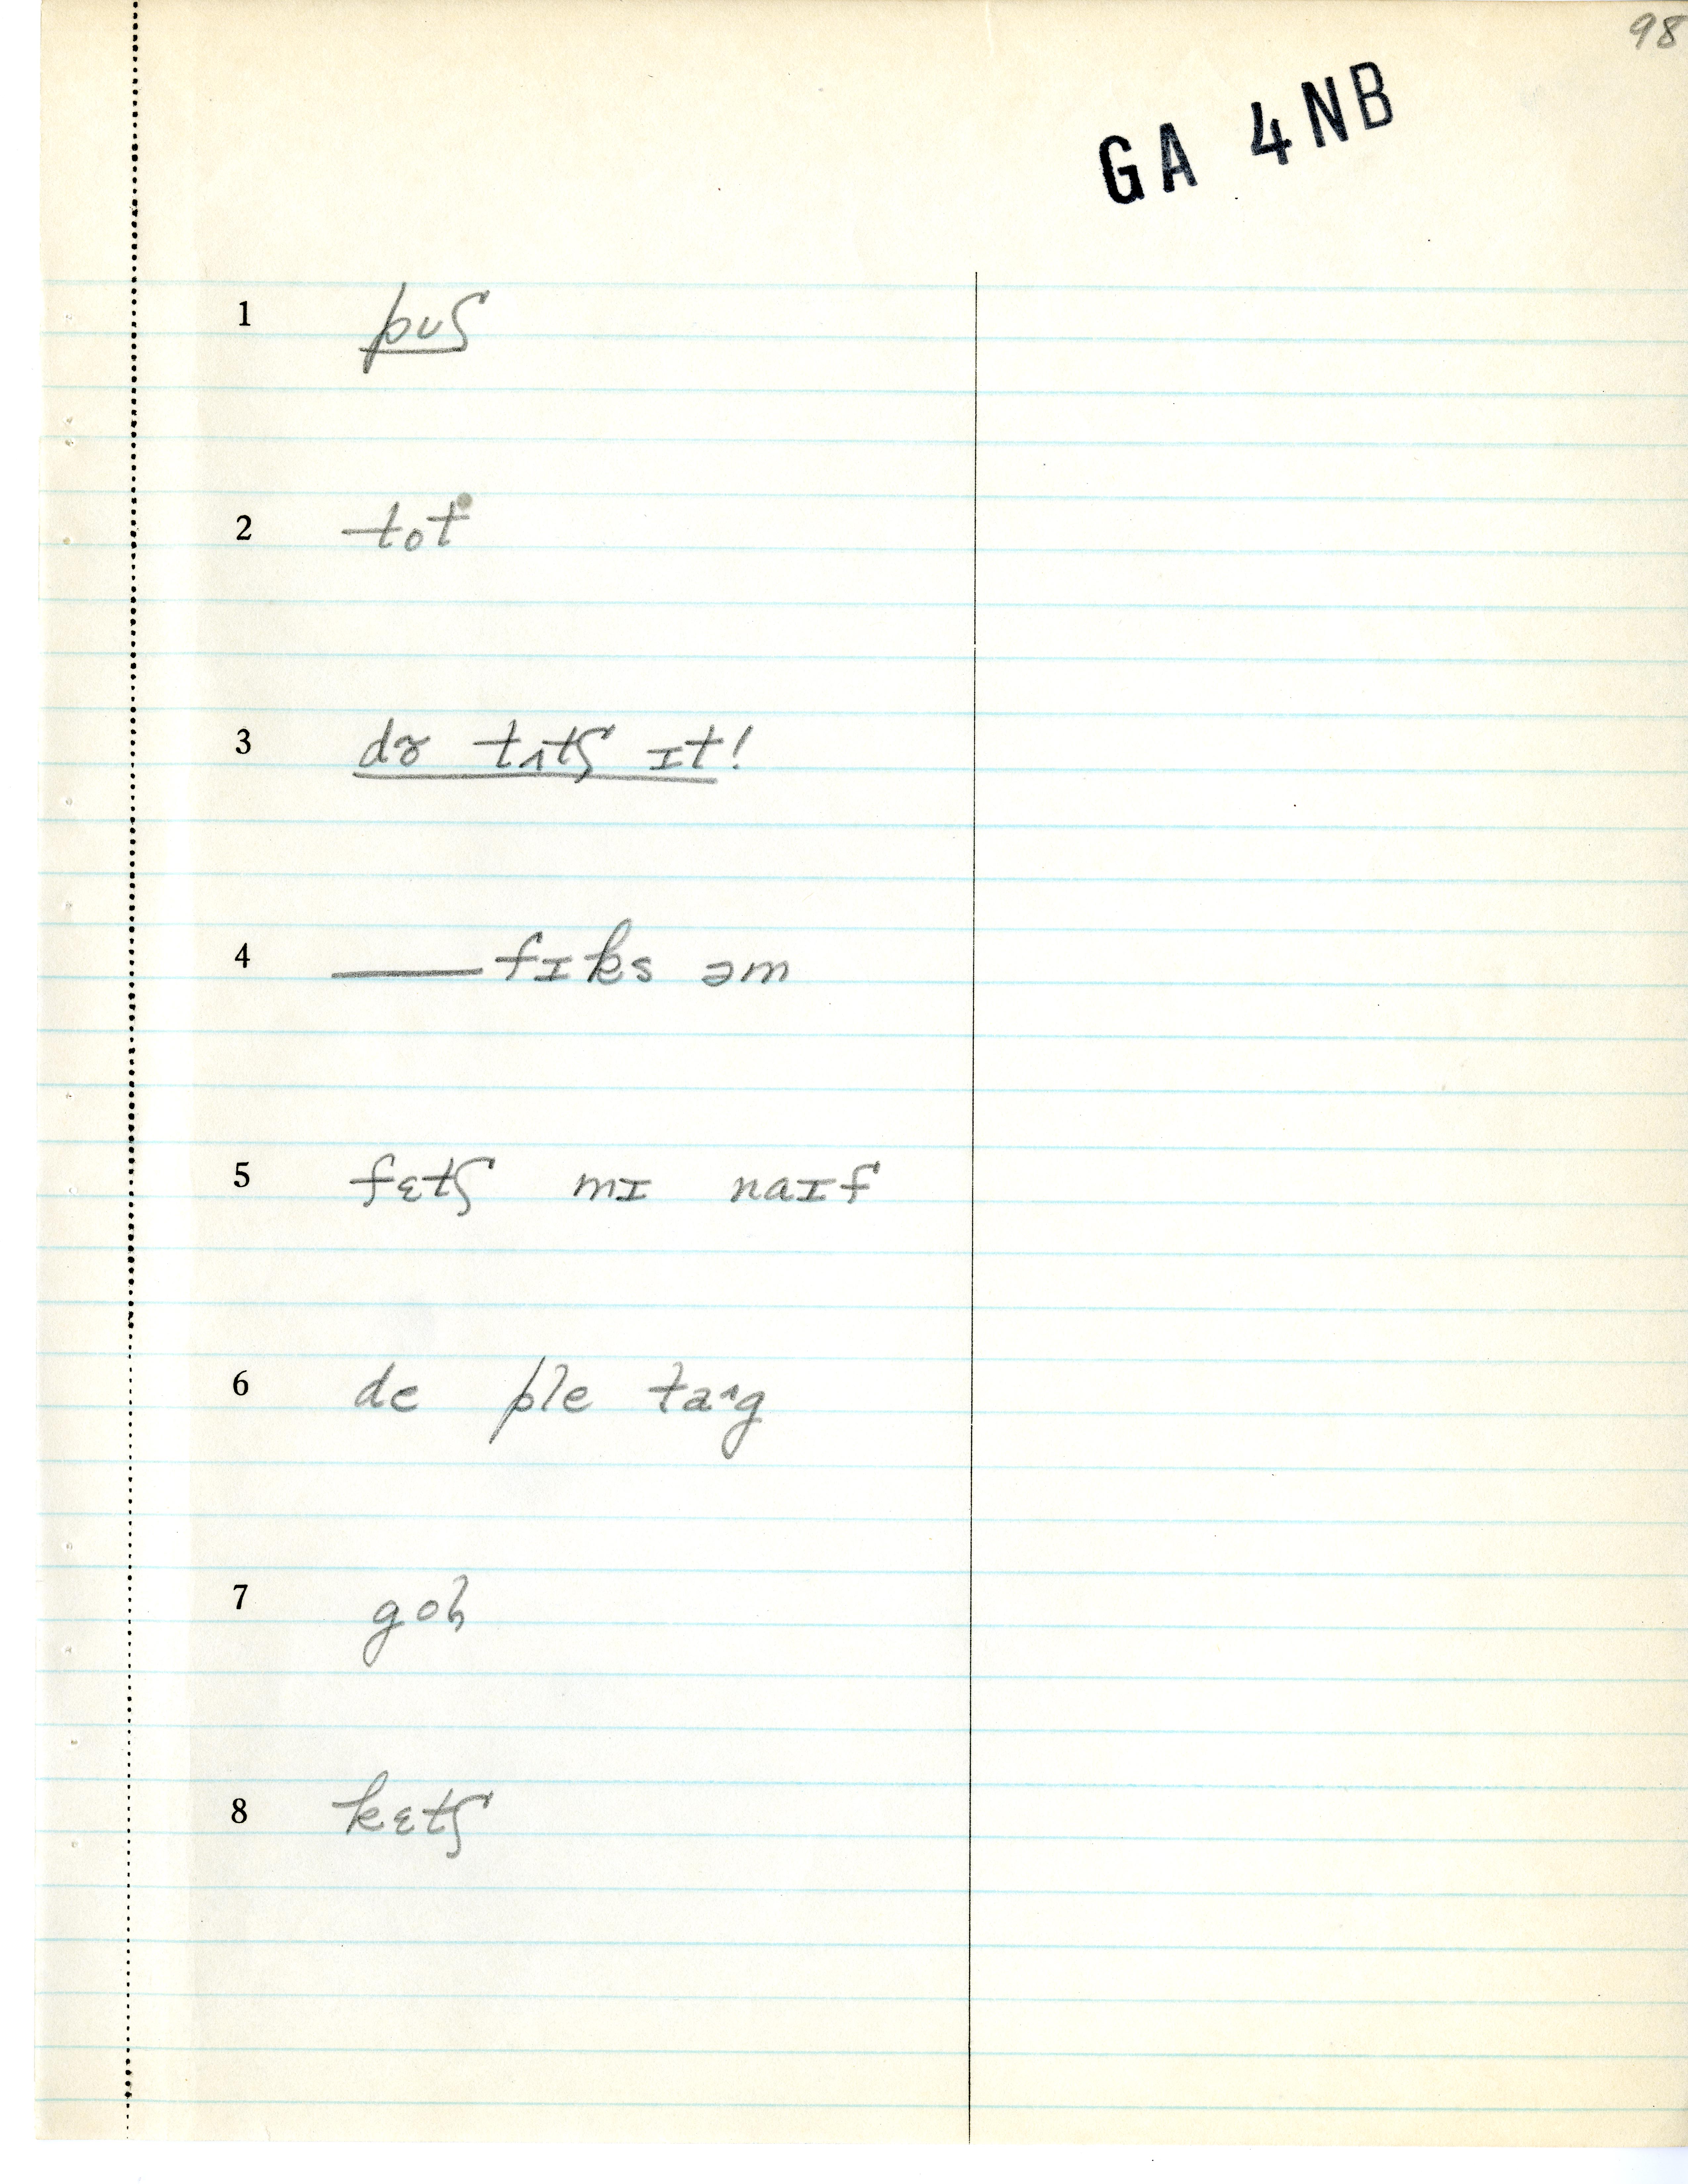 98
GA 4NB
1 pʊʃ
2 tot
3 tʌtʃ ɪt!
4 —— fɪks əm
5 fɛtʃ mɪ naɪf
6 de ple
7
8 kɛtʃ